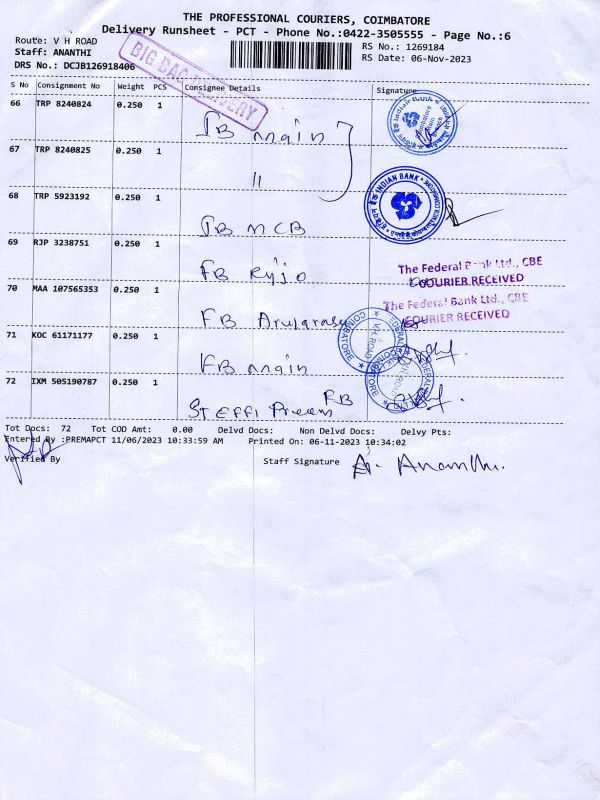 THE PROFESSIONAL COURIERS, COIMBATORE
Delivery Runsheet - PCT - Phone No.:0422-3505555 - Page No.:6
Route: V H ROAD RS No.: 1269184
Staff: ANANTHI RS Date: 06-Nov-2023
DRS No.: DCJB126918406
BIG BAG DELIVERY
S No Consignment No Weight PCS Consignee Details Signature
66 TRP 8240824 0.250 1 IB main
67 TRP 8240825 0.250 1 "
INDIAN BANK
68 TRP 5923192 0.250 1 IB MCB
69 RJP 3238751 0.250 1 FB Ryjo
The Federal Bank Ltd., CBE
COURIER RECEIVED
70 MAA 107565353 0.250 1 FB
The Federal Bank Ltd., CBE
COURIER RECEIVED
71 KOC 61171177 0.250 1 FB main
COIMBATORE V.H. ROAD FEDERAL
72 IXM 505190787 0.250 1 STEFFI FB
Tot Docs: 72 Tot COD Amt: 0.00 Delvd Docs: Non Delvd Docs: Delvy Pts:
Entered By :PREMAPCT 11/06/2023 10:33:59 AM Printed On: 06-11-2023 10:34:02
Verified By Staff Signature A. Ananthi.